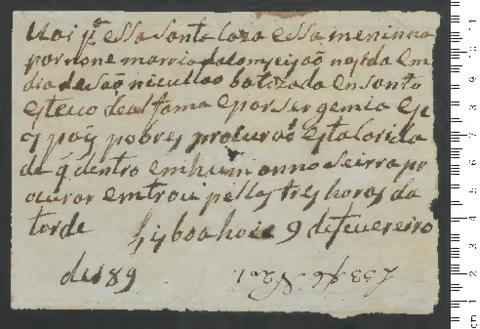 Uai pª essa santa caza essa meninna
por nome maria da comseisaõ nasida em
dia de saõ nicullao batizada en santo
esteuo de alfama e por ser gemia e
os pais pobres procuraõ esta
de q dentro em hum anno se irra pr
ocurar emtroi pellas tres horas da
tarde Lisboa hoie 9 de feuereiro
de 189
L 53 46 N 201